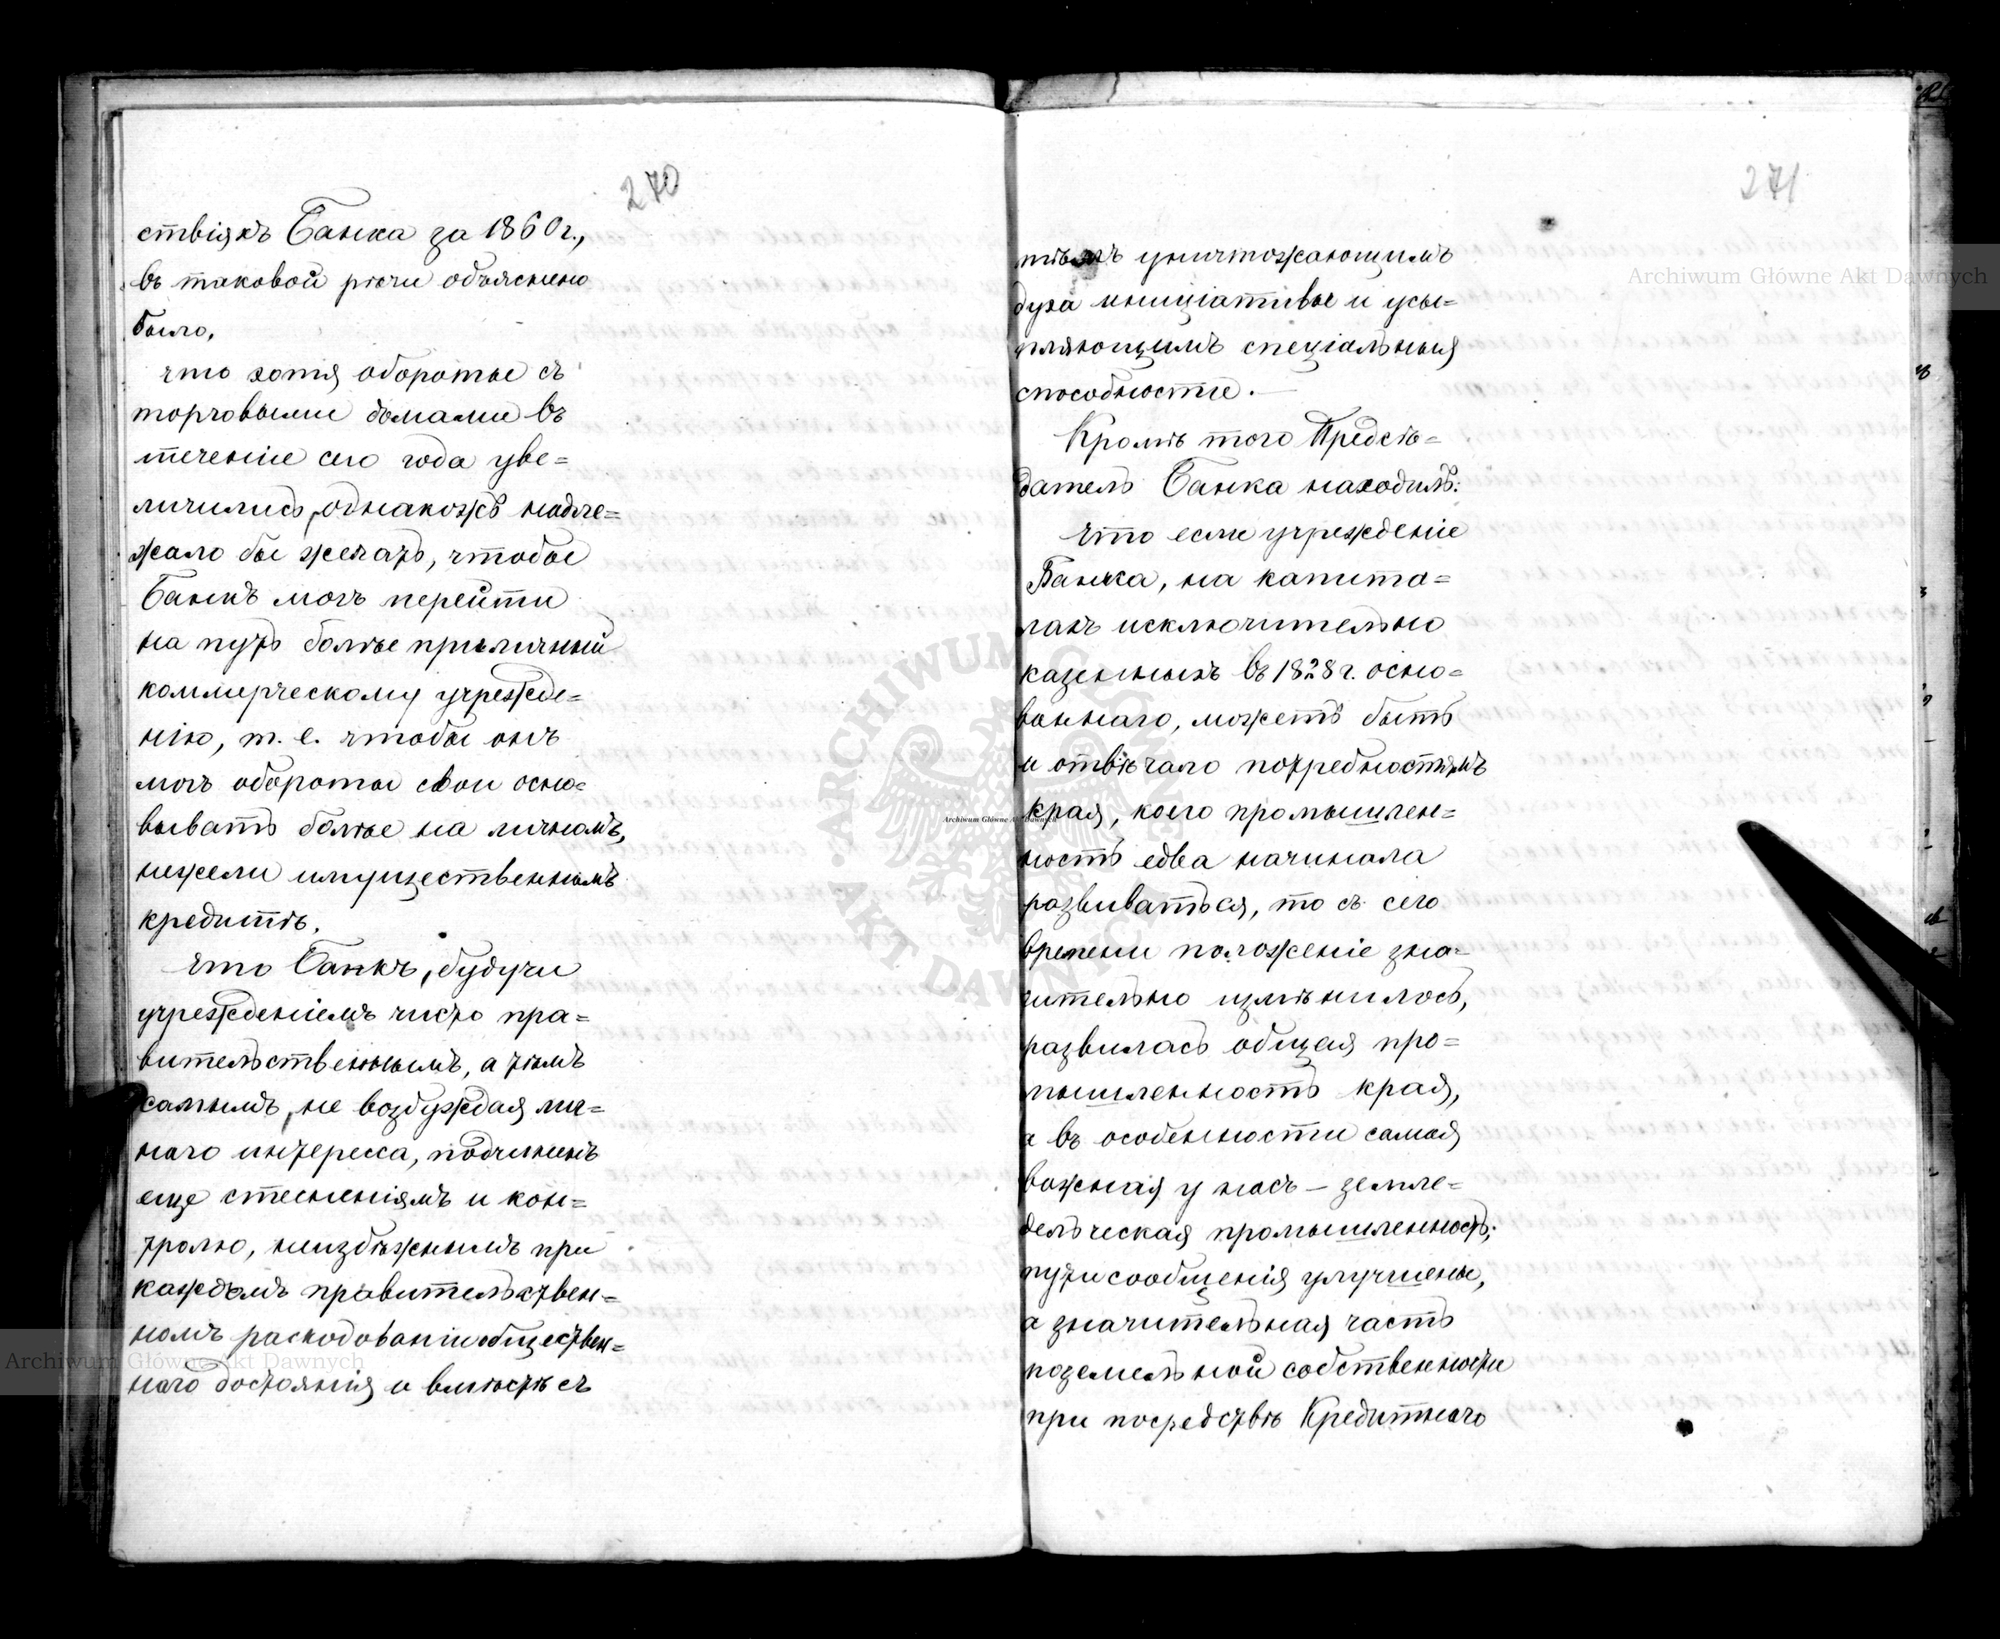 270
ствіяхъ Банка за 1860 г.,
въ таковой рѣчи объяснено
было,
что хотя обороты съ
торговыми домами въ
теченіе сего года уве=
личились, однакожъ надле=
жало бы желать, чтобы
Банкъ могъ перейти
на путь болѣе приличный
коммерческому учрежде=
нію, т. е. чтобы онъ
могъ обороты свои осно=
вывать болѣе на личномъ,
нежели имущественномъ
кредитѣ.
что Банкъ, будучи
учрежденіемъ чисто пра=
вительственнымъ, а тѣмъ
самымъ, не возбуждая лич=
наго интересса, подчиненъ
еще стесненіямъ и кон=
тролю, неизбѣжнымъ при
каждомъ правительствен=
номъ расходованіи обществен=
наго достоянія и вмѣстѣ съ
271
тѣмъ уничтожающимъ
духа иниціативы и усы=
пляющимъ спеціальныя
способности. —
Кромѣ того Предсѣ=
датель Банка находилъ:
что если учрежденіе
Банка, на капита=
лахъ исключительно
казенныхъ въ 1828 г. осно=
ваннаго, можетъ быть
и отвѣчало потребностямъ
края, коего промышлен=
ность едва начинала
развиваться, то съ сего
времени положеніе зна=
чительно измѣнилось,
развилась общая про=
мышленность края,
а въ особенности самая
важная у насъ — земле=
дельческая промышленность;
пути сообщенія улучшены,
а значительная часть
поземельной собственности
при посредствѣ Кредитнаго
Archiwum Główne Akt Dawnych
Archiwum Główne Akt Dawnych
Archiwum Główne Akt Dawnych
ARCHIWUM GŁÓWNE AKT DAWNYCH